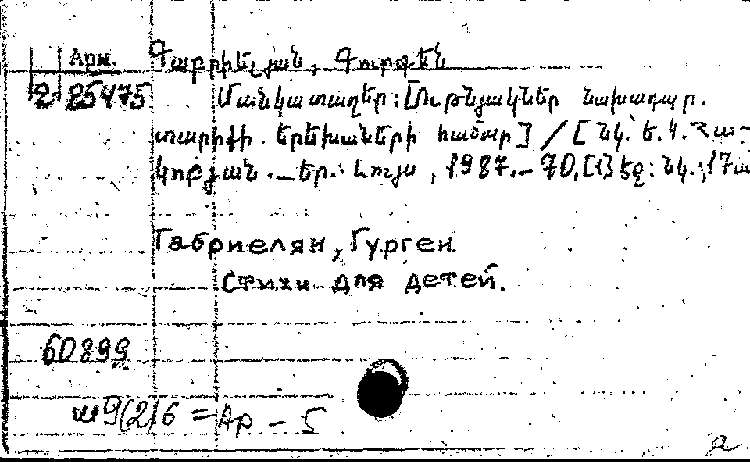 Арм.
2-85475
Գաբրիելյան, Գուրգեն
Մանկատաղեր: [Ոտանավորներ նախադպր.
տարիքի երեխաների համար] / [Նկ.՝ Ե. Վ.
կոբյան. — Եր.: Լույս, 1987. — 70, [1] էջ: նկ.; 17
Габриелян, Гурген
Стихи для детей.
60899
ш9(2)6 = Ар – 5